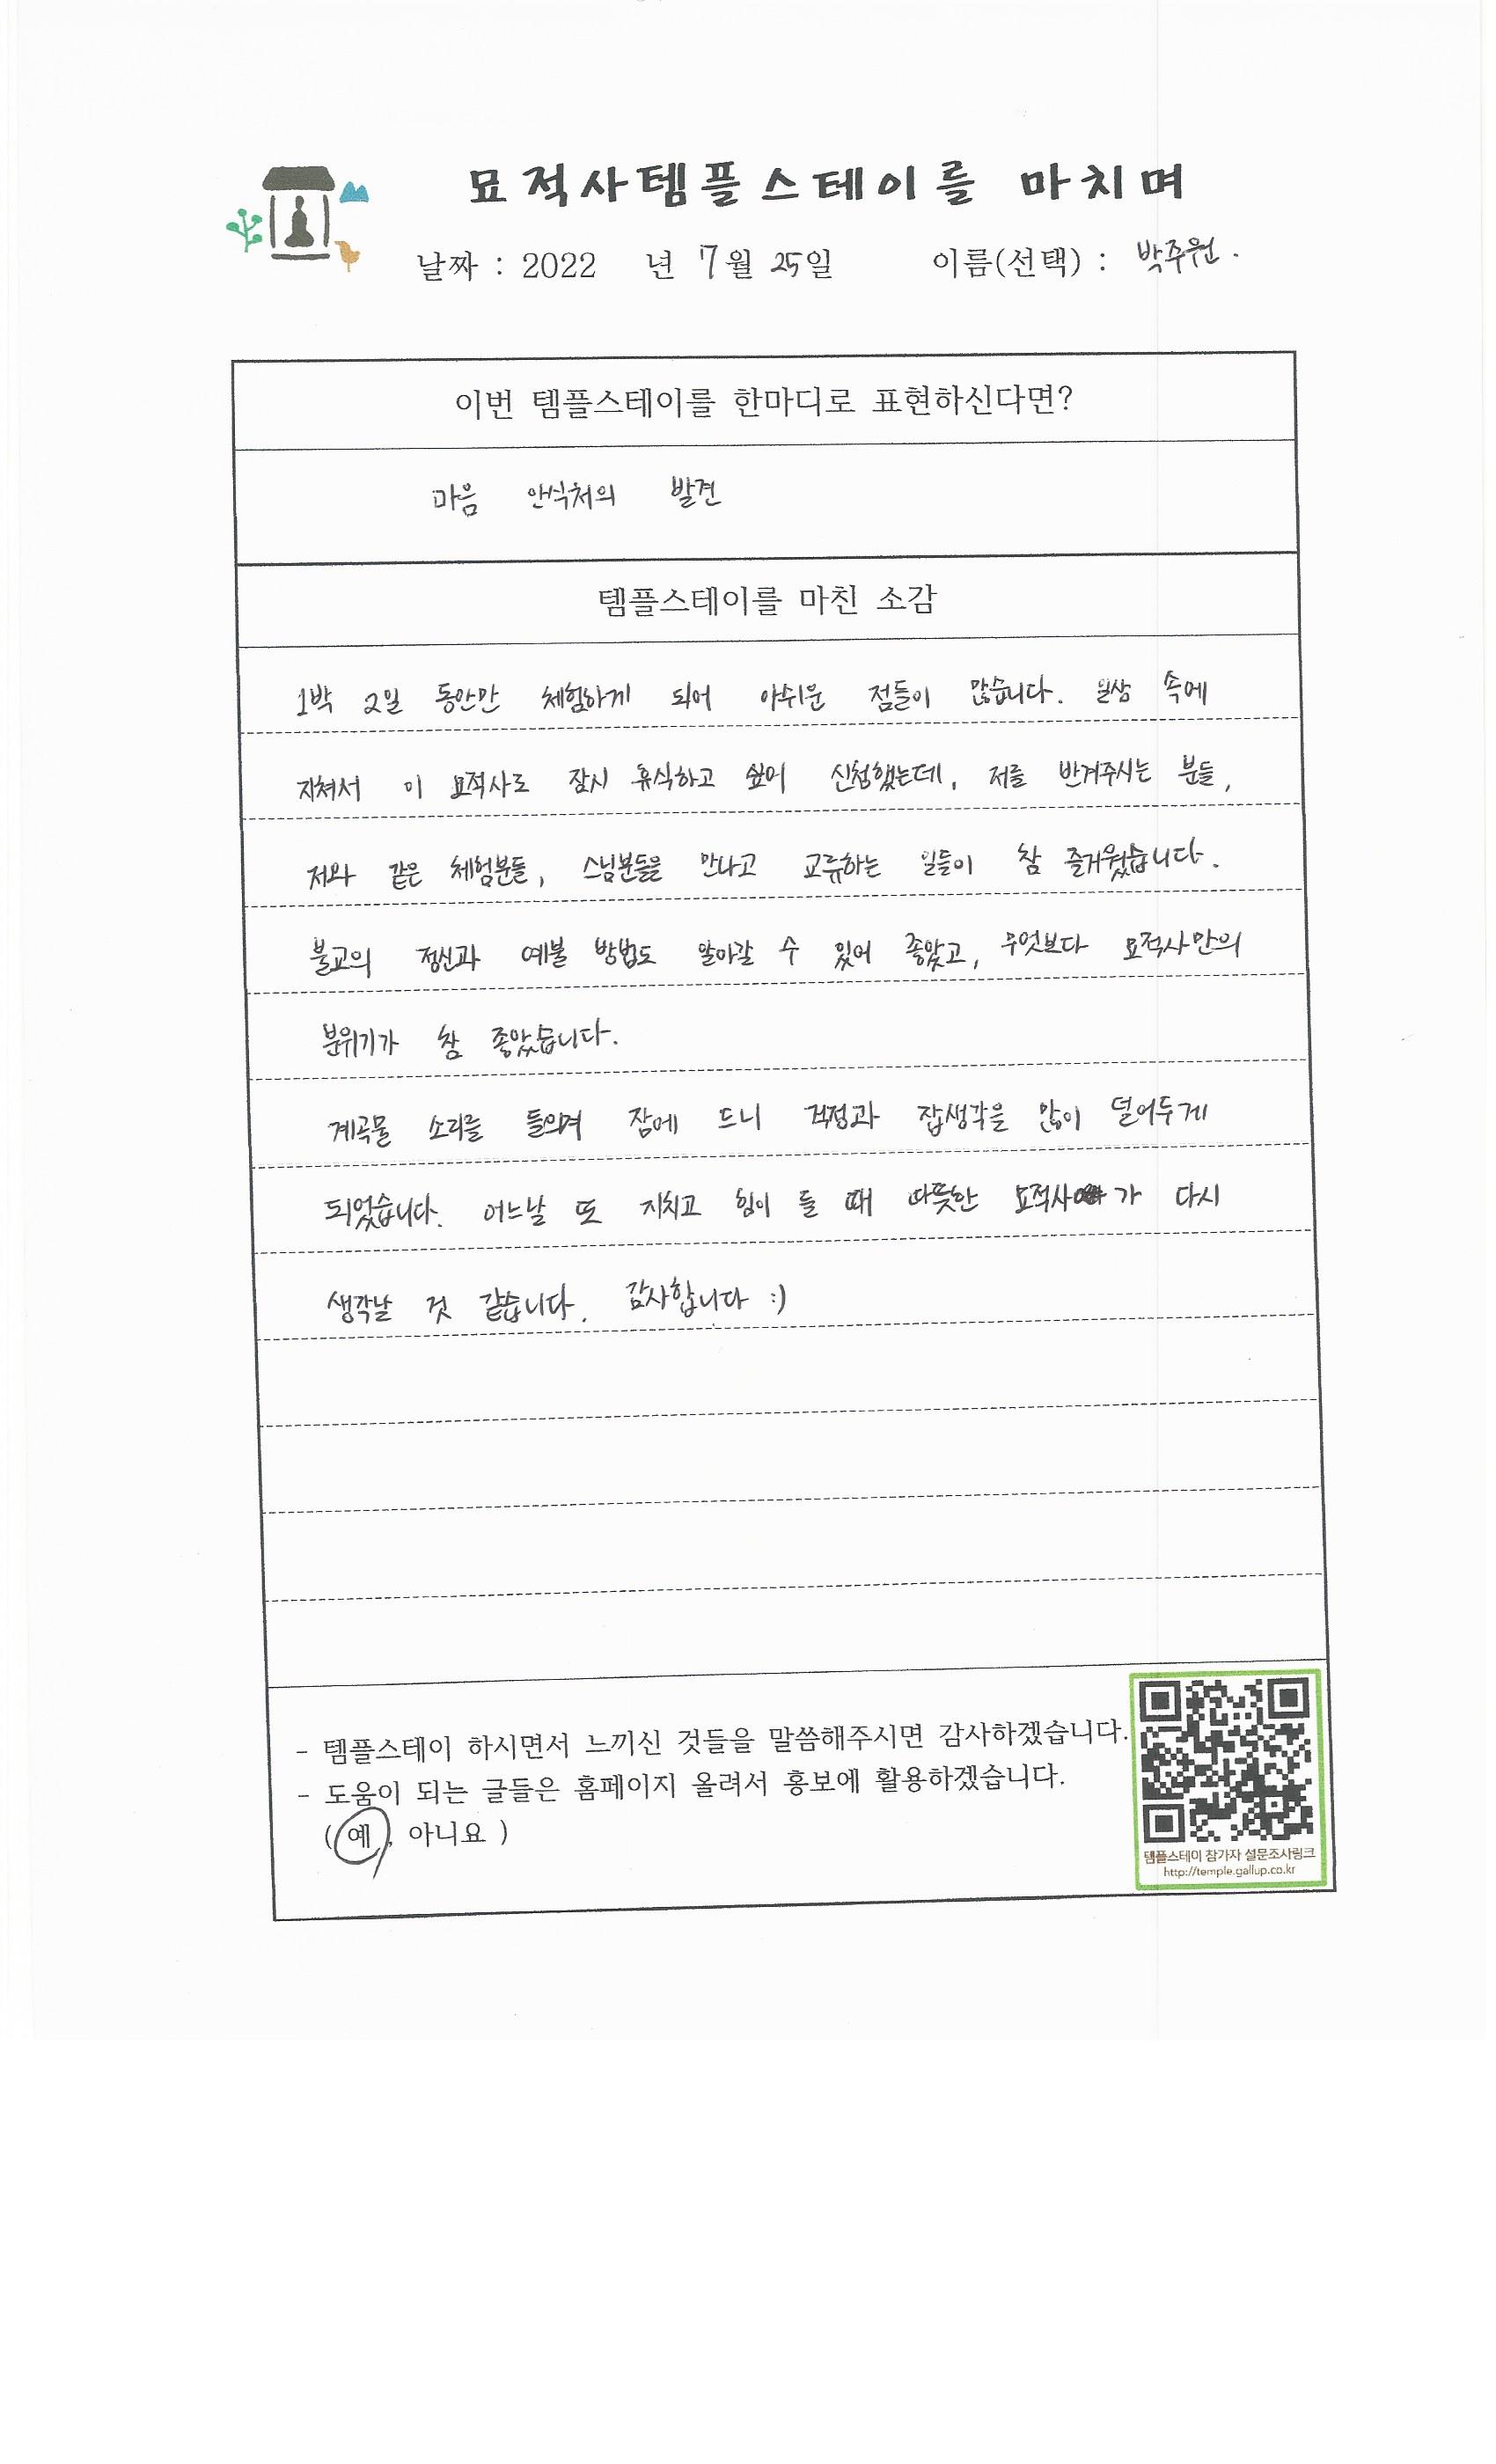 묘적사템플스테이를 마치며
날짜 : 2022 년 7월 25일 이름(선택) : 박주원.
이번 템플스테이를 한마디로 표현하신다면?
마음 안식처의 발견
템플스테이를 마친 소감
1박 2일 동안만 체험하게 되어 아쉬운 점들이 많습니다. 일상 속에
지쳐서 이 묘적사로 잠시 휴식하고 싶어 신청했는데, 저를 반겨주시는 분들,
저와 같은 체험분들, 스님분들을 만나고 교류하는 일들이 참 즐거웠습니다.
불교의 정신과 예불 방법도 알아갈 수 있어 좋았고, 무엇보다 묘적사만의
분위기가 참 좋았습니다.
계곡물 소리를 들으며 잠에 드니 걱정과 잡생각을 많이 덜어두게
되었습니다. 어느날 또 지치고 힘이 들 때 따뜻한 묘적사가 다시
생각날 것 같습니다. 감사합니다 :)
- 템플스테이 하시면서 느끼신 것들을 말씀해주시면 감사하겠습니다.
- 도움이 되는 글들은 홈페이지 올려서 홍보에 활용하겠습니다.
( 예 , 아니요 )
템플스테이 참가자 설문조사링크
http://temple.gallup.co.kr